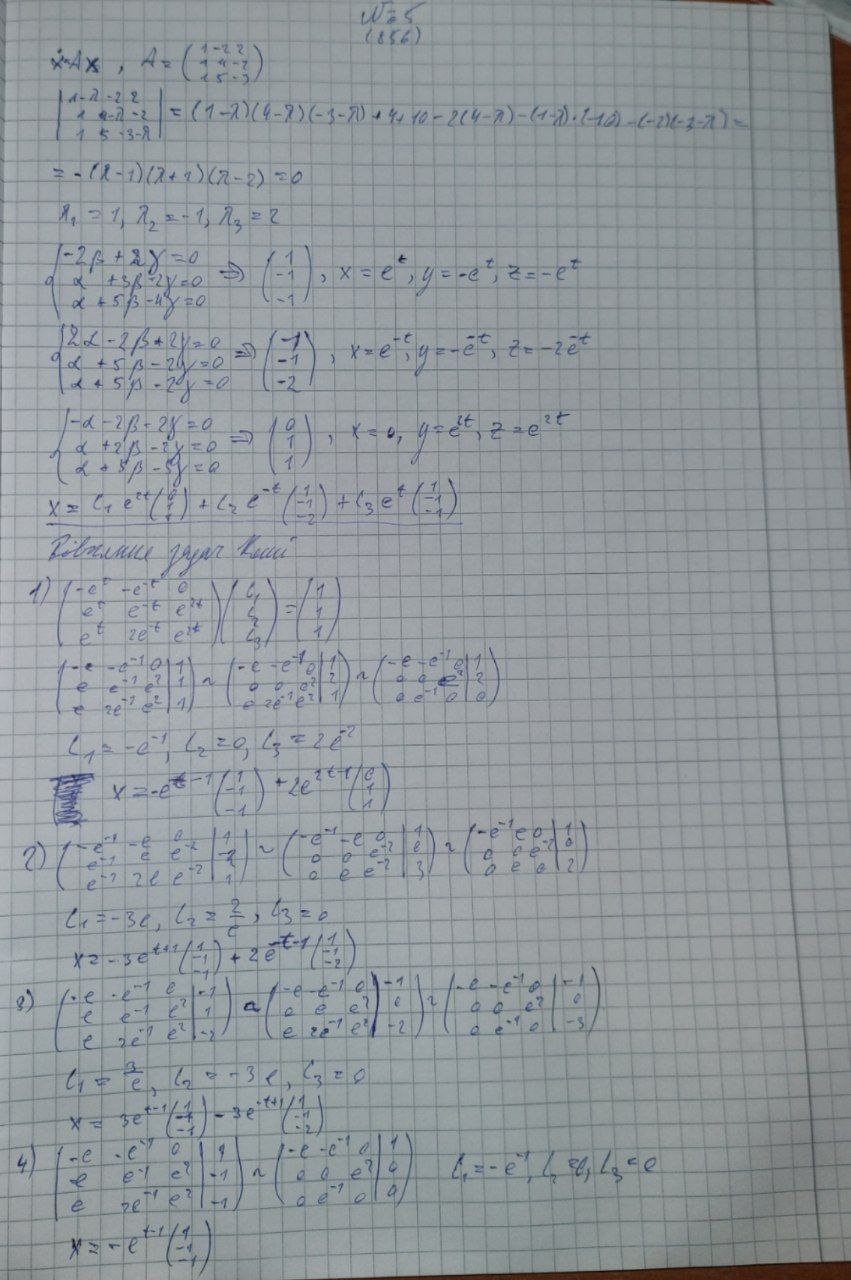 №5
(856)
ẋ=Ax, A = (1 -2 2 / 1 4 -2 / 1 5 -3)
|1-λ -2 2 / 1 4-λ -2 / 1 5 -3-λ| = (1-λ)(4-λ)(-3-λ)+4+10-2(4-λ)-(1-λ)·(-10)-(-2)(-3-λ)=
= -(λ-1)(λ+1)(λ-2)=0
λ₁ = 1, λ₂ = -1, λ₃ = 2
{-2β + 2γ = 0 / α + 3β - 2γ = 0 / α + 5β - 4γ = 0 ⇒ (1 / -1 / -1), x = e^t, y = -e^t, z = -e^t
{2α - 2β + 2γ = 0 / α + 5β - 2γ = 0 / α + 5β - 2γ = 0 ⇒ (1 / -1 / -2), x = e^-t, y = -e^-t, z = -2e^-t
{-α - 2β - 2γ = 0 / α + 2β - 2γ = 0 / α + 5β - 5γ = 0 ⇒ (0 / 1 / 1), x = 0, y = e^2t, z = e^2t
x = C₁ e^2t (0 / 1 / 1) + C₂ e^-t (1 / -1 / -2) + C₃ e^t (1 / -1 / -1)
задач Коші
1) (-e^t -e^-t 0 / e^t e^-t e^2t / e^t 2e^-t e^2t) (C₁ / C₂ / C₃) = (1 / 1 / 1)
(-e -e^-1 0 | 1 / e e^-1 e^2 | 1 / e 2e^-1 e^2 | 1) ~ (-e -e^-1 0 | 1 / 0 0 e^2 | 2 / e 2e^-1 e^2 | 1) ~ (-e -e^-1 0 | 1 / 0 0 e^2 | 2 / 0 e^-1 0 | 0)
C₁ = -e^-1, C₂ = 0, C₃ = 2e^-2
x = -e^t-1 (1 / -1 / -1) + 2e^2t-1 (0 / 1 / 1)
2) (-e^-1 -e 0 | 1 / e^-1 e e^-2 | -1 / e^-1 2e e^-2 | 1) ~ (-e^-1 -e 0 | 1 / 0 0 e^-2 | 0 / 0 e e^-2 | 3) ~ (-e^-1 e 0 | 1 / 0 0 e^-2 | 0 / 0 e 0 | 2)
C₁ = -3e, C₂ = 2/e, C₃ = 0
x = -3e^t+1 (1 / -1 / -1) + 2e^-t-1 (1 / -1 / -2)
3) (-e -e^-1 0 | -1 / e e^-1 e^2 | 1 / e 2e^-1 e^2 | -2) ~ (-e -e^-1 0 | -1 / 0 0 e^2 | 0 / e 2e^-1 e^2 | -2) ~ (-e -e^-1 0 | -1 / 0 0 e^2 | 0 / 0 e^-1 0 | -3)
C₁ = 3/e, C₂ = -3e, C₃ = 0
x = 3e^t-1 (1 / -1 / -1) - 3e^-t+1 (1 / -1 / -2)
4) (-e -e^-1 0 | 1 / e e^-1 e^2 | -1 / e 2e^-1 e^2 | -1) ~ (-e -e^-1 0 | 1 / 0 0 e^2 | 0 / 0 e^-1 0 | 0) C₁ = -e^-1, C₂ = 0, C₃ = 0
x = -e^t-1 (1 / -1 / -1)